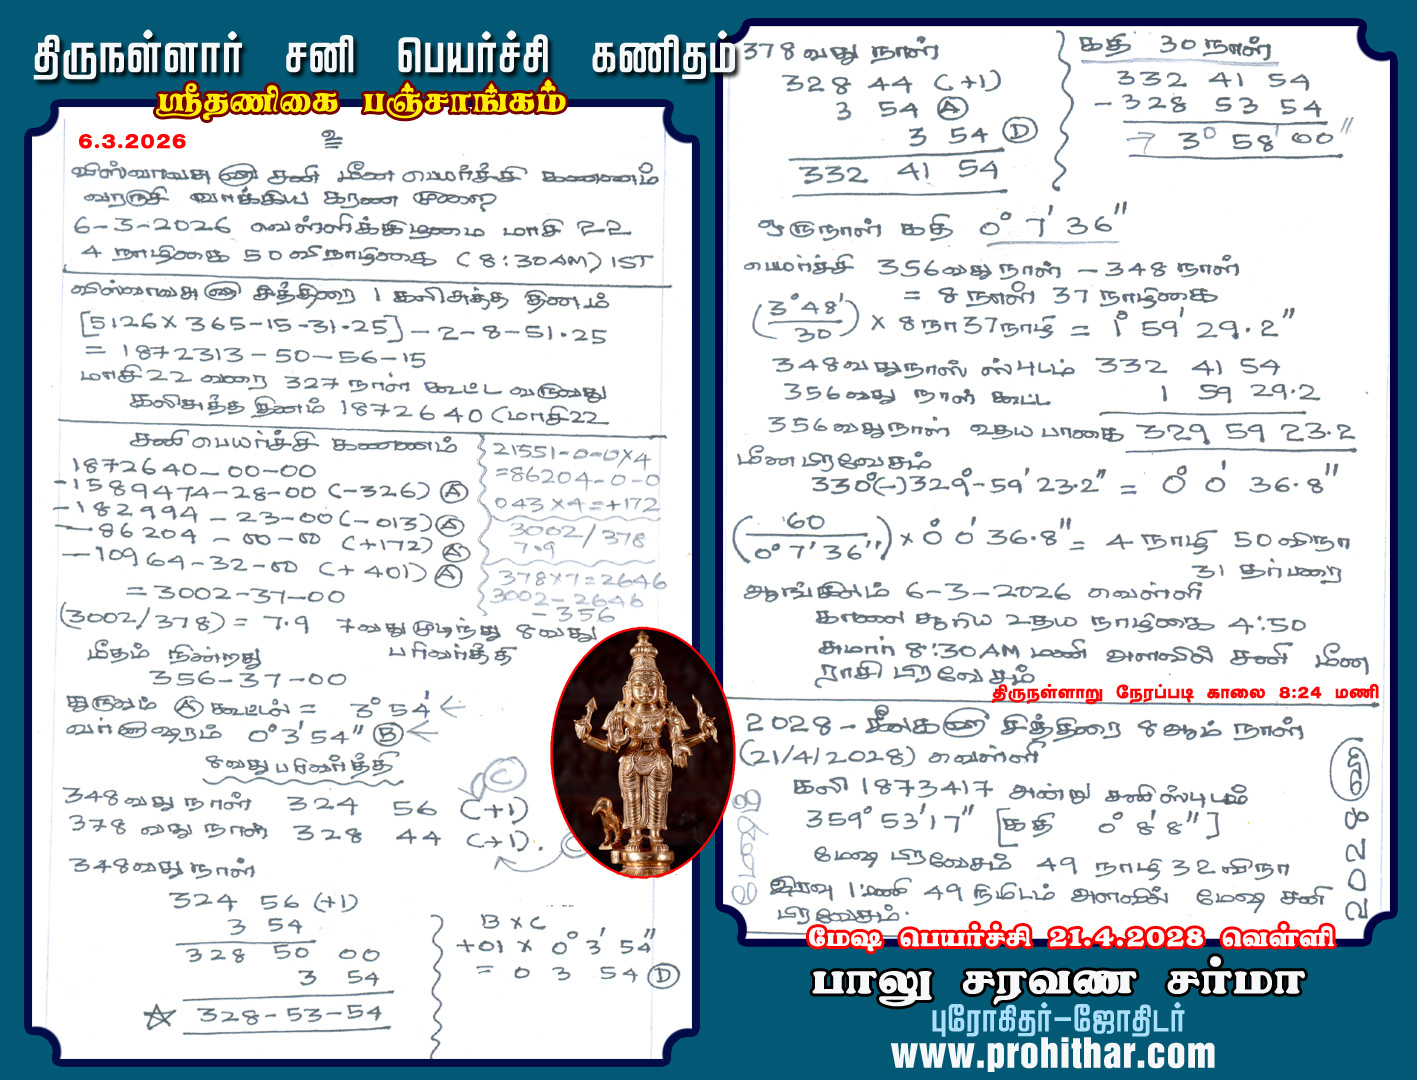 திருநள்ளார் சனி பெயர்ச்சி கணிதம்
ஸ்ரீதணிகை பஞ்சாங்கம்
6.3.2026
உ
விஸ்வாவசு ௵ சனி மீன பெயர்ச்சி கணணம்
வரருசி வாக்கிய கரண முறை
6-3-2026 வெள்ளிக்கிழமை மாசி 22
4 நாழிகை 50 விநாழிகை (8:30AM) IST
விஸ்வாவசு ௵ சித்திரை 1 கலிசுத்த தினம்
[5126 x 365-15-31.25] - 2-8-51.25
= 1872313-50-56-15
மாசி 22 வரை 327 நாள் கூட்ட வருவது
கலிசுத்த தினம் 1872640 (மாசி 22
சனி பெயர்ச்சி கணணம்
1872640-00-00
-1589474-28-00 (-326) A
-182994-23-00 (-013) A
-86204-00-00 (+172) A
-10964-32-00 (+401) A
= 3002-37-00
21551-0-0x4
=86204-0-0
043x4=+172
3002/378
7.9
378x7=2646
3002-2646
-356
(3002/378) = 7.9 7வது முடிந்து 8வது
மீதம் நின்றது பரிவர்த்தி
356-37-00
துருவம் A கூட்டல் = 3° 54'
0° 3' 54" B
8வது பரிவர்த்தி
C
348வது நாள் 324 56 (+1)
378 வது நாள் 328 44 (+1)
348வது நாள்
324 56 (+1)
3 54
328 50 00
3 54
328-53-54
B x C
+01 x 0° 3' 54"
= 0 3 54 D
378வது நாள்
328 44 (+1)
3 54 A
3 54 D
332 41 54
கதி 30நாள்
332 41 54
-328 53 54
3° 58' 00"
ஒருநாள் கதி 0° 7' 36"
பெயர்ச்சி 356வது நாள் - 348 நாள்
= 8 நாள் 37 நாழிகை
(3° 48' / 30) x 8நா 37நாழி = 1° 59' 29.2"
348வது நாள் ஸ்புடம் 332 41 54
356வது நாள் கூட்ட 1 59 29.2
356வது நாள் உதய பாகை 329 59 23.2
மீன பிரவேசம்
330°(-) 329°-59' 23.2" = 0° 0' 36.8"
(60 / 0° 7' 36") x 0° 0' 36.8" = 4 நாழி 50 விநா
31 தர்பரை
ஆங்கிலம் 6-3-2026 வெள்ளி
காலை சூரிய உதய நாழிகை 4:50
சுமார் 8:30AM மணி அளவில் சனி மீன
ராசி பிரவேசம்
திருநள்ளாறு நேரப்படி காலை 8:24 மணி
2028 - கீலக ௵ சித்திரை 8ஆம் நாள்
(21/4/2028) வெள்ளி
கலி 1873417 அன்று சனிஸ்புடம்
359° 53' 17" [கதி 0° 8' 8"]
மேஷ பிரவேசம் 49 நாழி 32 விநா
இரவு 1மணி 49 நிமிடம் அளவில் மேஷ சனி
பிரவேசம்.
2028
மேஷ பெயர்ச்சி 21.4.2028 வெள்ளி
பாலு சரவண சர்மா
புரோகிதர்-ஜோதிடர்
www.prohithar.com